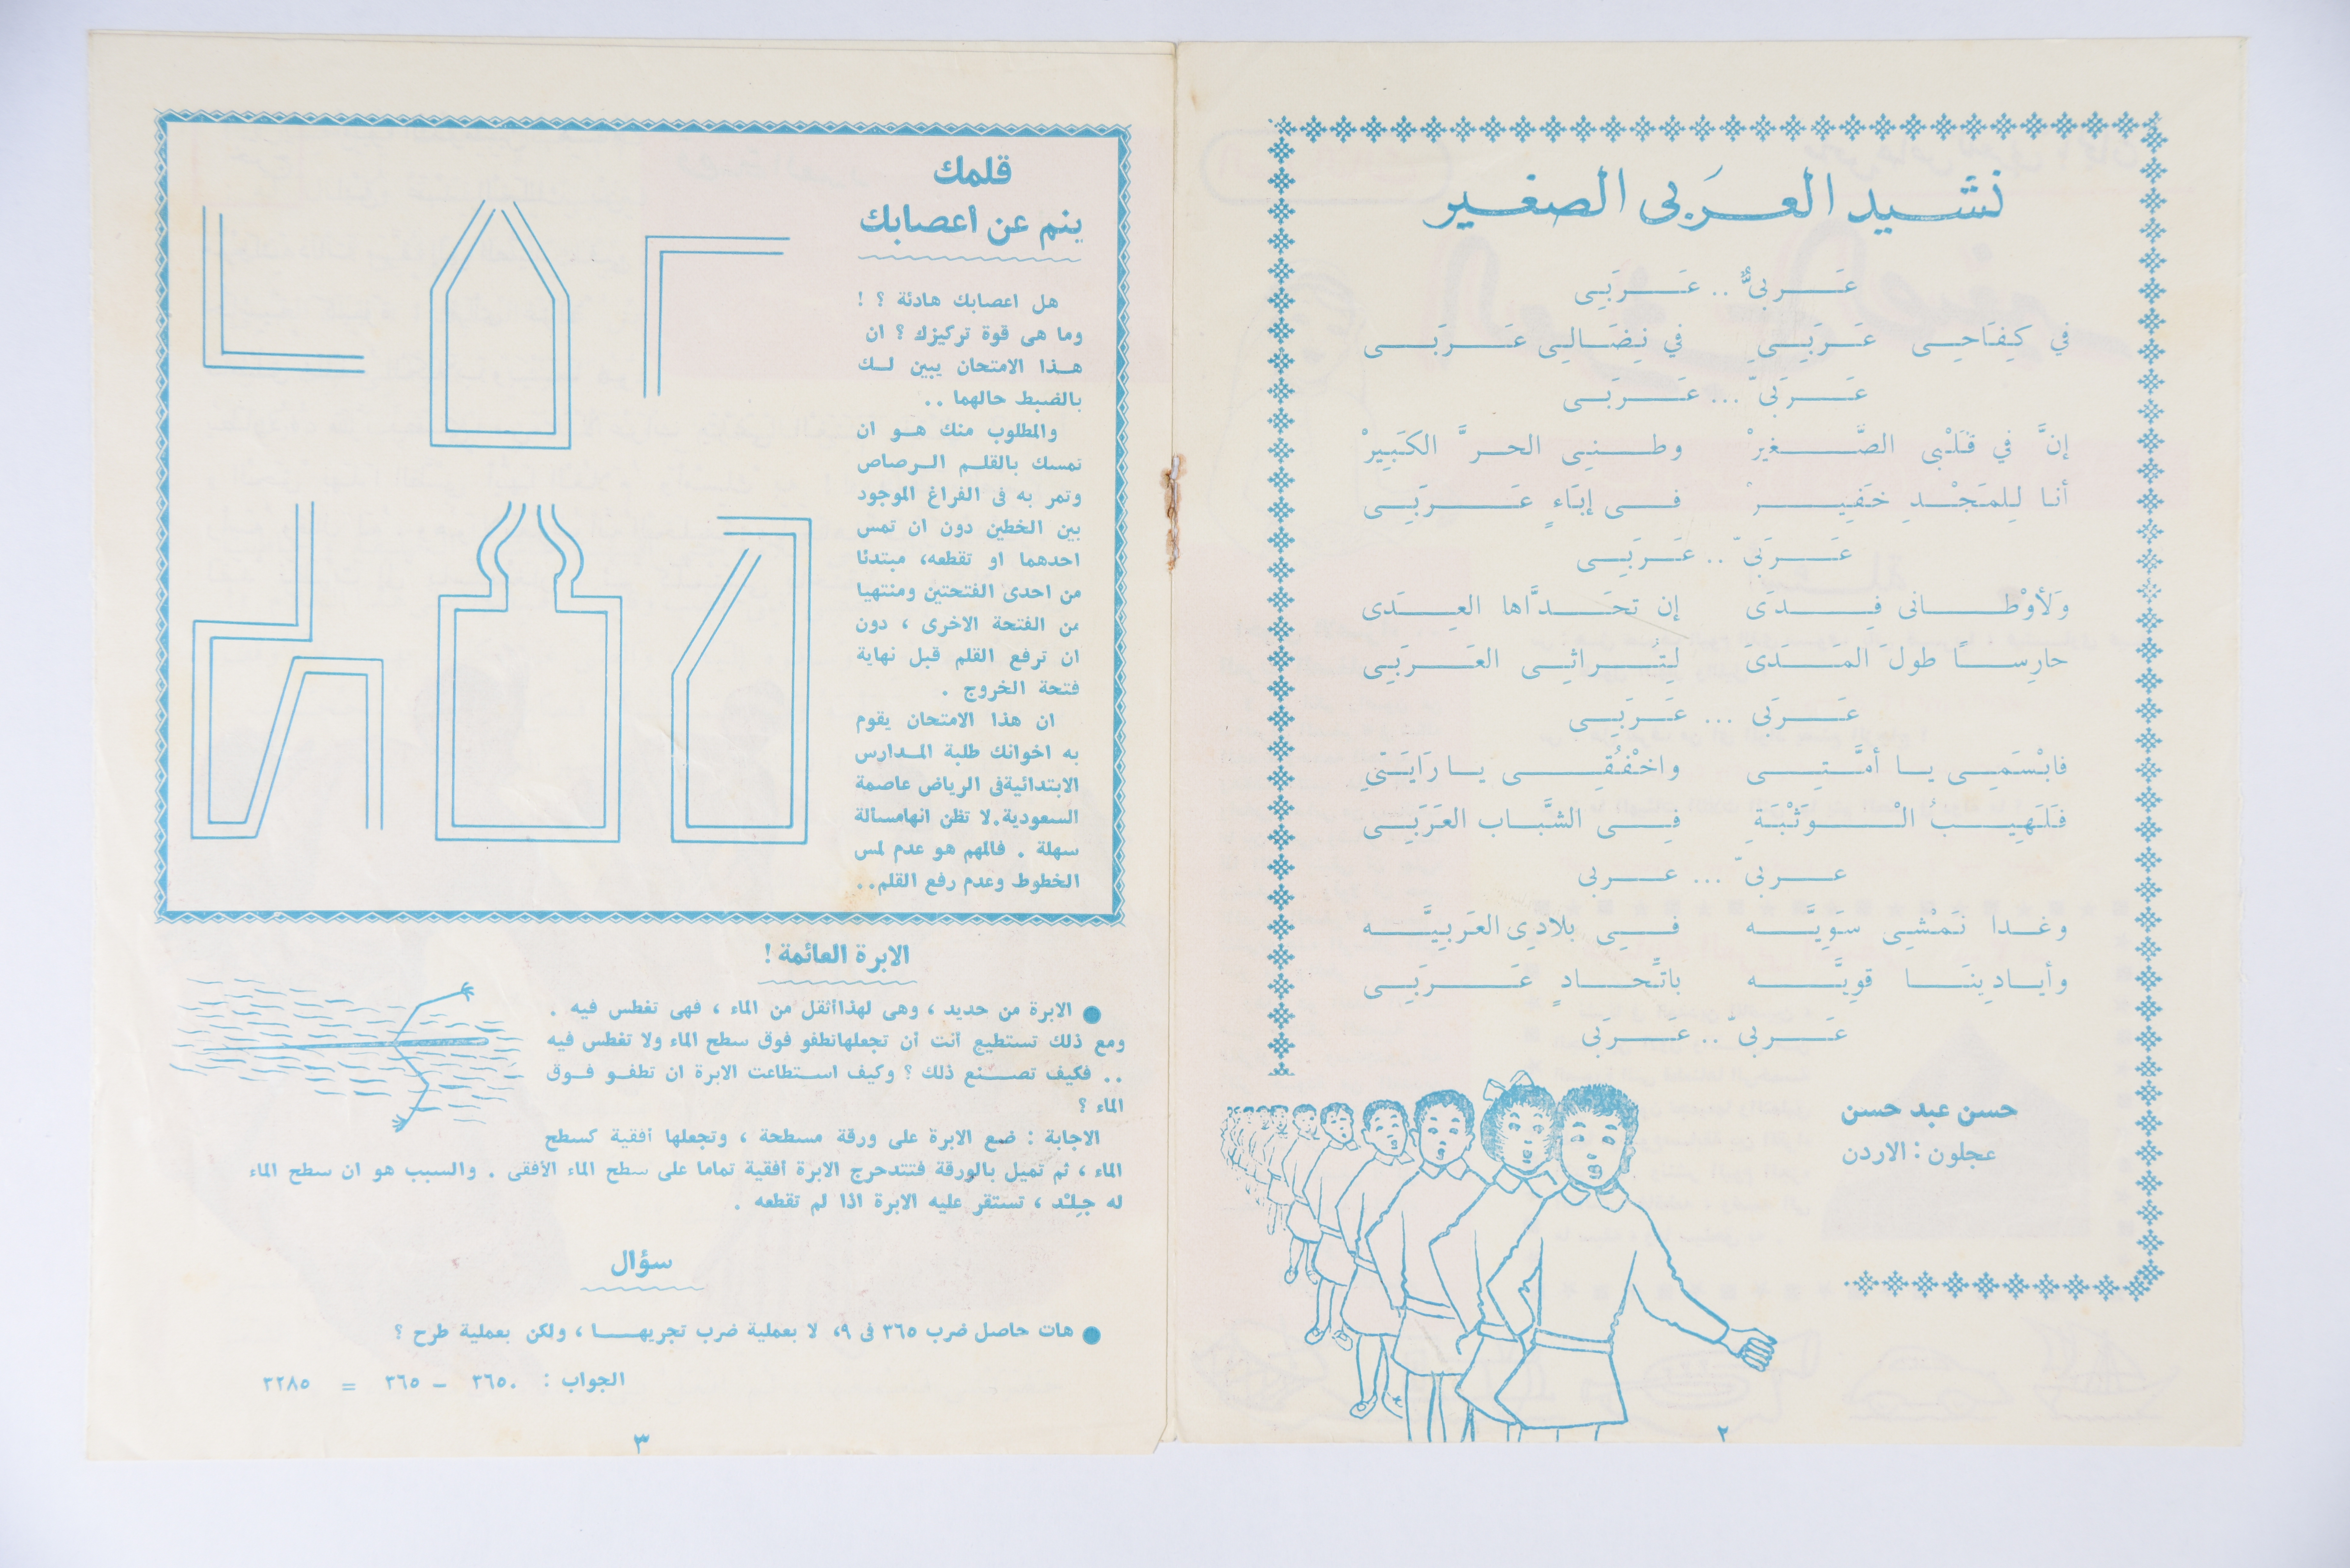 نشيد العربى الصغير
عَربىٌّ .. عَرَبِى
في كِفَاحِى عَرَبِىٌ في نِضَالِى عَرَبَى
عَرَبىّ ... عَرَبَى
إنَّ في قَلْبى الصَّغيرْ وطنِى الحرَّ الكَبِيرْ
أنا لِلمَجْدِ خَفِيرْ فى إبَاءٍ عَرَبِى
عَرَبىّ .. عَرَبِى
وَلأوْطانى فِدَى إن تحَدَّاها العِدَى
حارِسًا طولَ المَدَىَ لِتُراثِى العَرَبِى
عَرَبى ... عَرَبِى
فابْسَمِى يا أمَّتِى واخْفُقِى يا رَايَتىِ
فَلَهِيبُ الْوَثْبَةِ فِى الشَّباب العَرَبَى
عربىّ ... عربى
وغدا نَمْشِى سَوِيَّه فىِ بلادِى العَرَبِيَّه
وأيادِينَا قوِيَّه باتِّحادٍ عَرَبِى
عَربىّ .. عَرَبى
حسن عبد حسن
عجلون : الاردن
٢
قلمك
ينم عن أعصابك
هل اعصابك هادئة ؟ !
وما هى قوة تركيزك ؟ ان
هذا الامتحان يبين لك
بالضبط حالهما ..
والمطلوب منك هو ان
تمسك بالقلم الرصاص
وتمر به فى الفراغ الموجود
بين الخطين دون ان تمس
احدهما او تقطعه، مبتدئا
من احدى الفتحتين ومنتهيا
من الفتحة الاخرى ، دون
ان ترفع القلم قبل نهاية
فتحة الخروج .
ان هذا الامتحان يقوم
به اخوانك طلبة المدارس
الابتدائيةفى الرياض عاصمة
السعودية.لا تظن انهامسألة
سهلة . فالمهم هو عدم لمس
الخطوط وعدم رفع القلم..
الابرة العائمة !
● الابرة من حديد ، وهى لهذاأثقل من الماء ، فهى تغطس فيه .
ومع ذلك تستطيع أنت أن تجعلهاتطفو فوق سطح الماء ولا تغطس فيه
.. فكيف تصنع ذلك ؟ وكيف استطاعت الابرة ان تطفو فوق
الماء ؟
الاجابة : ضع الابرة على ورقة مسطحة ، وتجعلها أفقية كسطح
الماء ، ثم تميل بالورقة فتتدحرج الابرة أفقية تماما على سطح الماء الأفقى . والسبب هو ان سطح الماء
له جِلْد ، تستقر عليه الابرة اذا لم تقطعه .
سؤال
● هات حاصل ضرب ٣٦٥ فى ٩، لا بعملية ضرب تجريها ، ولكن بعملية طرح ؟
الجواب : ٣٦٥٠ – ٣٦٥ = ٣٢٨٥
٣